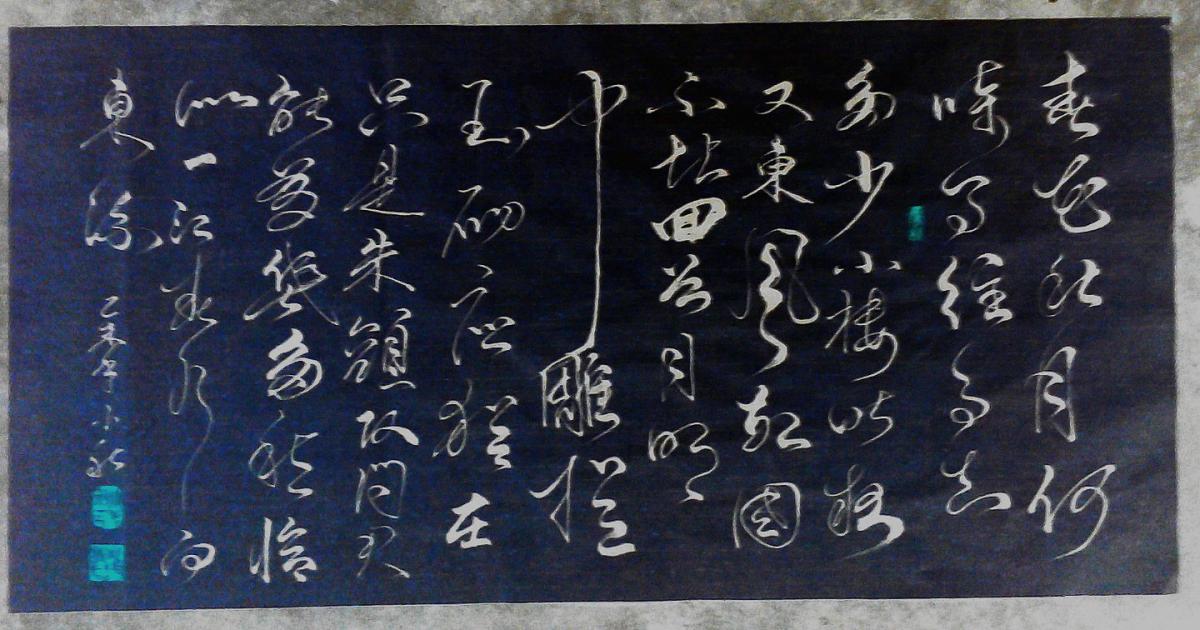 春花秋月何
時了往事知
多少小樓昨夜
又東風故國
不堪回首月明
中雕欄
玉砌應猶在
只是朱顏改問君
能有幾多愁恰
似一江春水向
東流
乙未年小秋